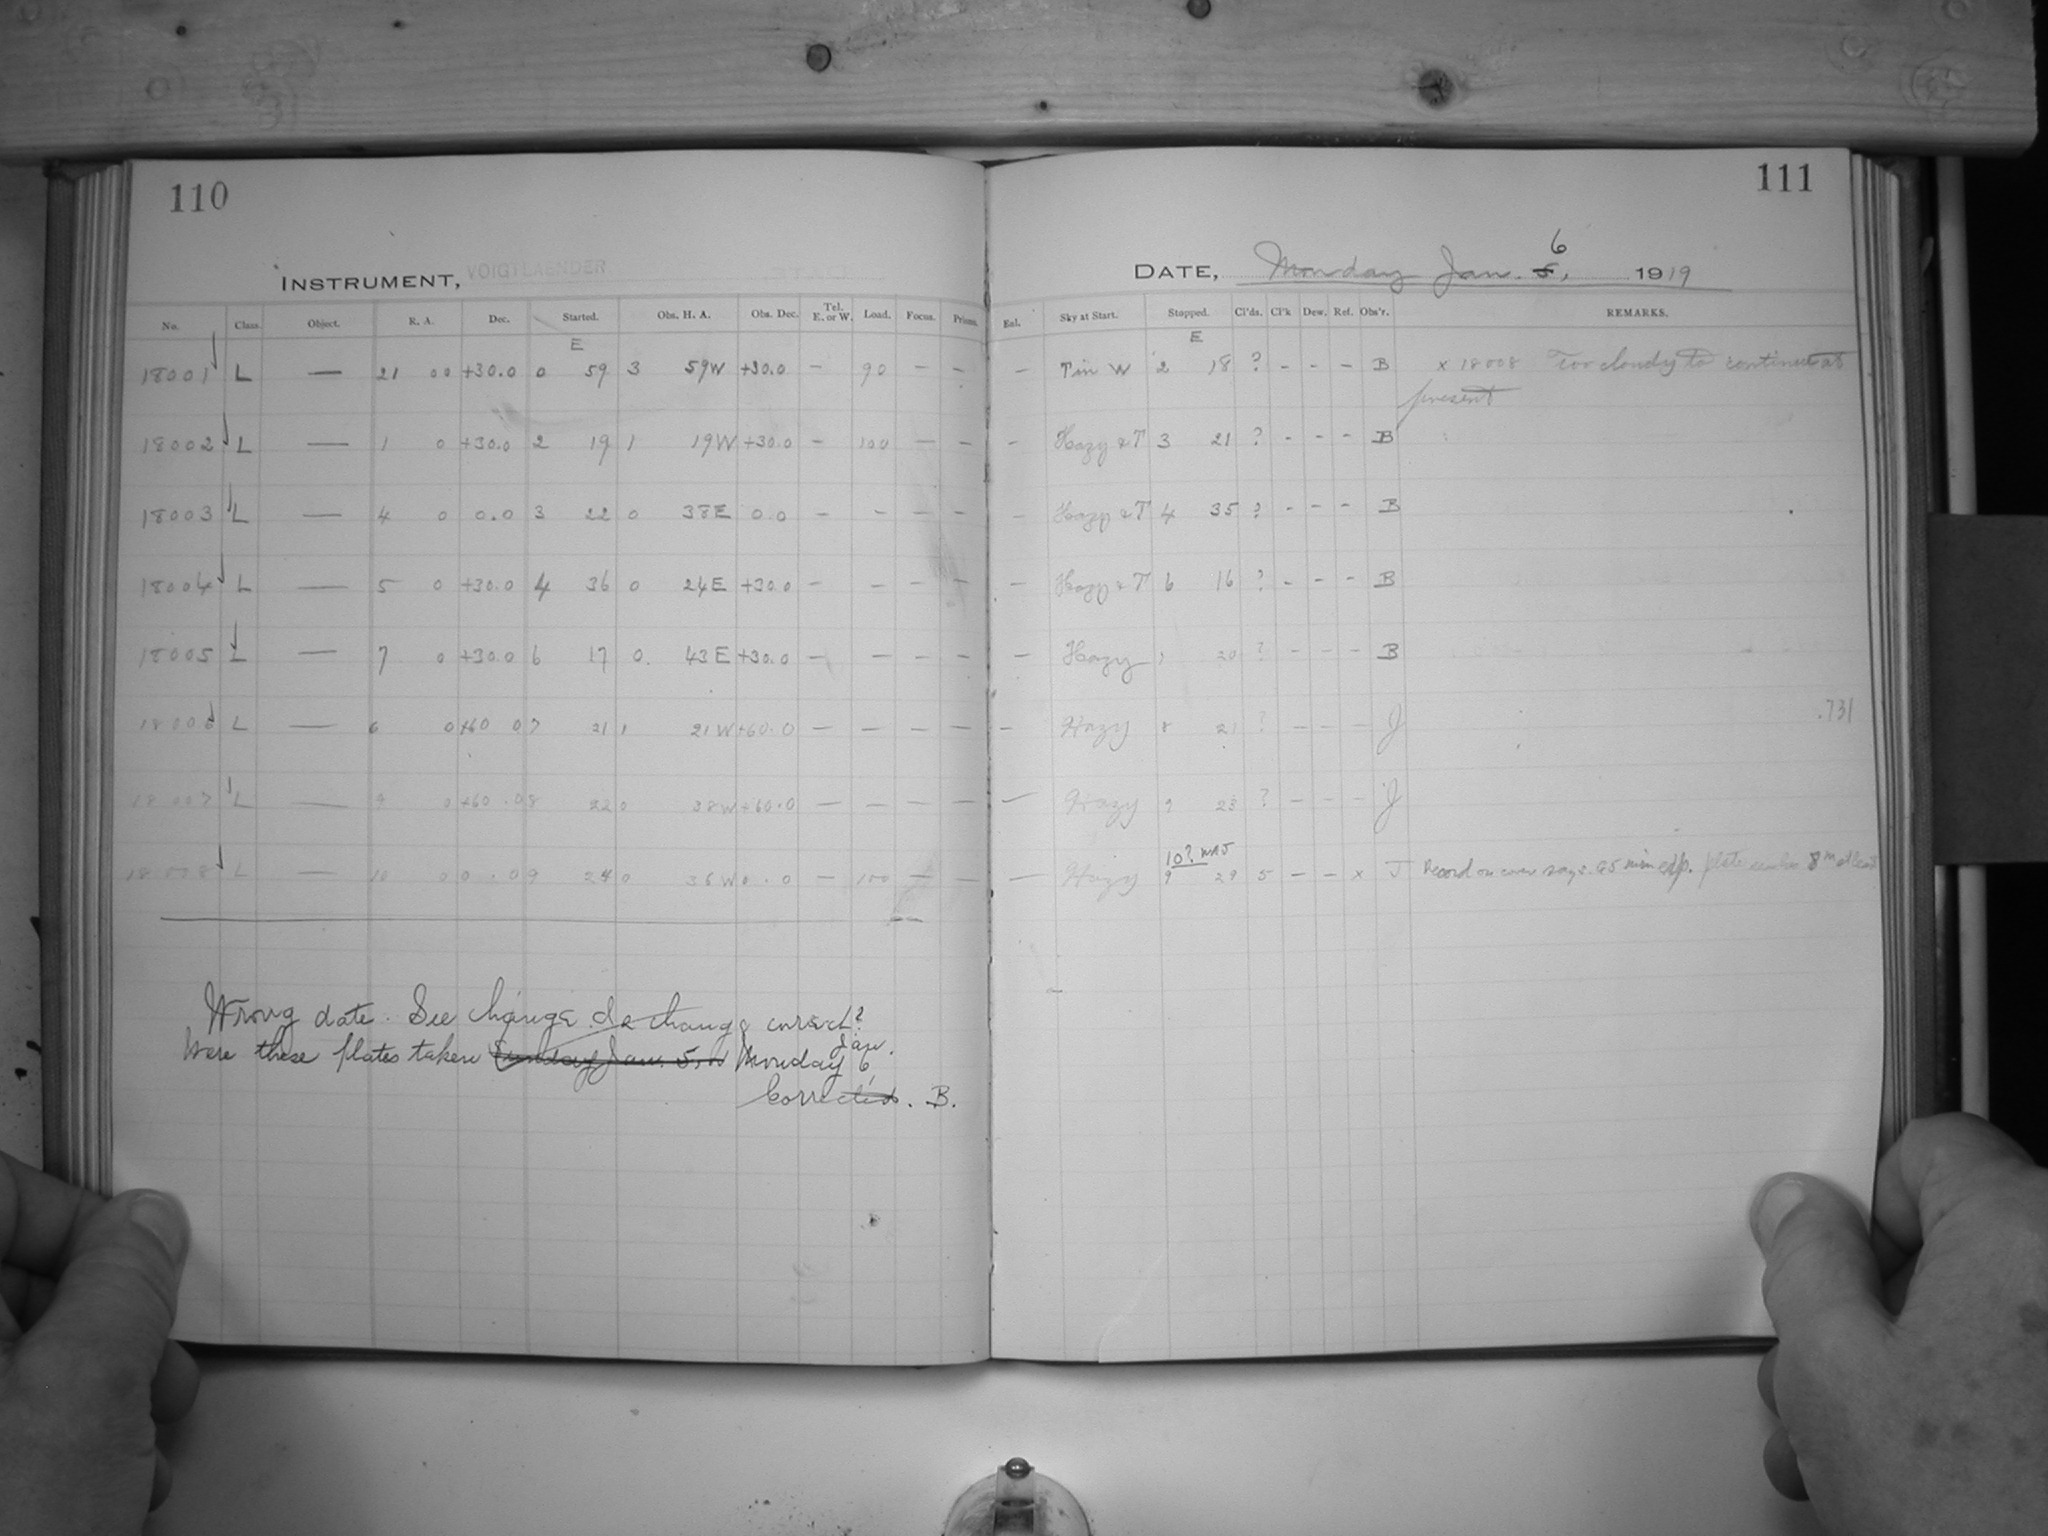 110
111
INSTRUMENT, VOIGTLAENDER
DATE, Monday Jan. 5, 6 1919
No. Class. Object. R. A. Dec. Started. Obs. H. A. Obs. Dec. Tel. E. or W. Load. Focus. Prisms. Enl. Sky at Start. Stopped. Cl'ds. Cl'k Dew. Ref. Obs'r. REMARKS.
E E
18001 L — 21 00 +30.0 0 59 3 59W +30.0 – 90 – – – T in W 2 18 ? - - - B x 18008 Too cloudy to continue at
present
18002 L — 1 0 +30.0 2 19 1 19W +30.0 – 100 – – – Hazy & T 3 21 ? - - - B
18003 L — 4 0 0.0 3 22 0 38E 0.0 – – – – – Hazy & T 4 35 ? - - - B
18004 L — 5 0 +30.0 4 36 0 24E +30.0 – – – – – Hazy & T 6 16 ? - - - B
18005 L — 7 0 +30.0 6 17 0. 43E +30.0 – – – – – Hazy 7 20 ? - - - B
18006 L — 6 0 +60 0 7 21 1 21W +60.0 – – – – – Hazy 8 21 ? – – – J .731
18007 L — 9 0 +60.0 8 22 0 38W +60.0 – – – – – Hazy 9 23 ? – – – J
10? WAJ
18008 L — 10 0 0.0 9 24 0 36W 0.0 – 100 – – – Hazy 9 29 5 – – x J Record on cover says 65 min exp. plate 8m at least
Wrong date. See change. Is change correct?
Were these plates taken Sunday Jan. 5, or Monday Jan. 6,
Corrected. B.